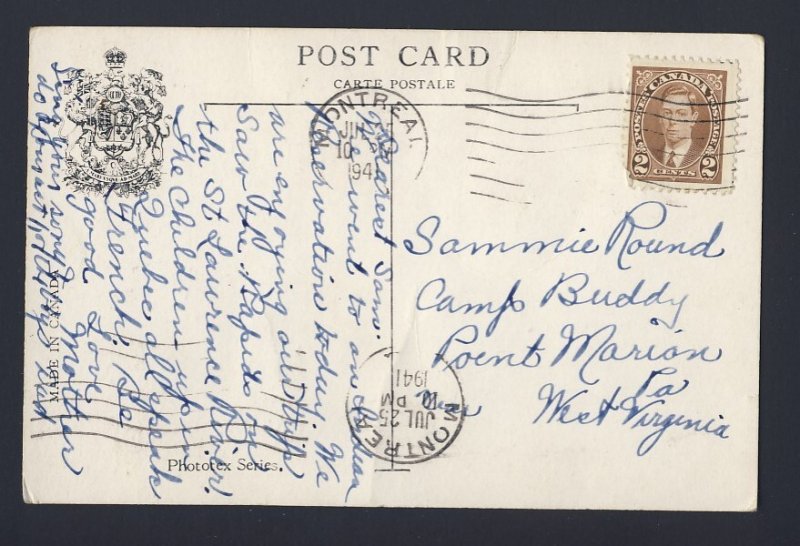 POST CARD
CARTE POSTALE
MONTREAL
10
1941
POSTES CANADA POSTAGE
2 CENTS 2
Dearest Sam.
We went to an Indian
Reservation today. We
are enjoying our trip
Saw the Rapids in
the St Lawrence River.
The Children up in
Quebec all speak
French. Be
good Love
Mother
Sing your song
do
Sammie Round
Camp Buddy
Point Marion
Pa
West Virginia
MONTREAL
10 PM
JUL 25
1941
MADE IN CANADA
Phototex Series.